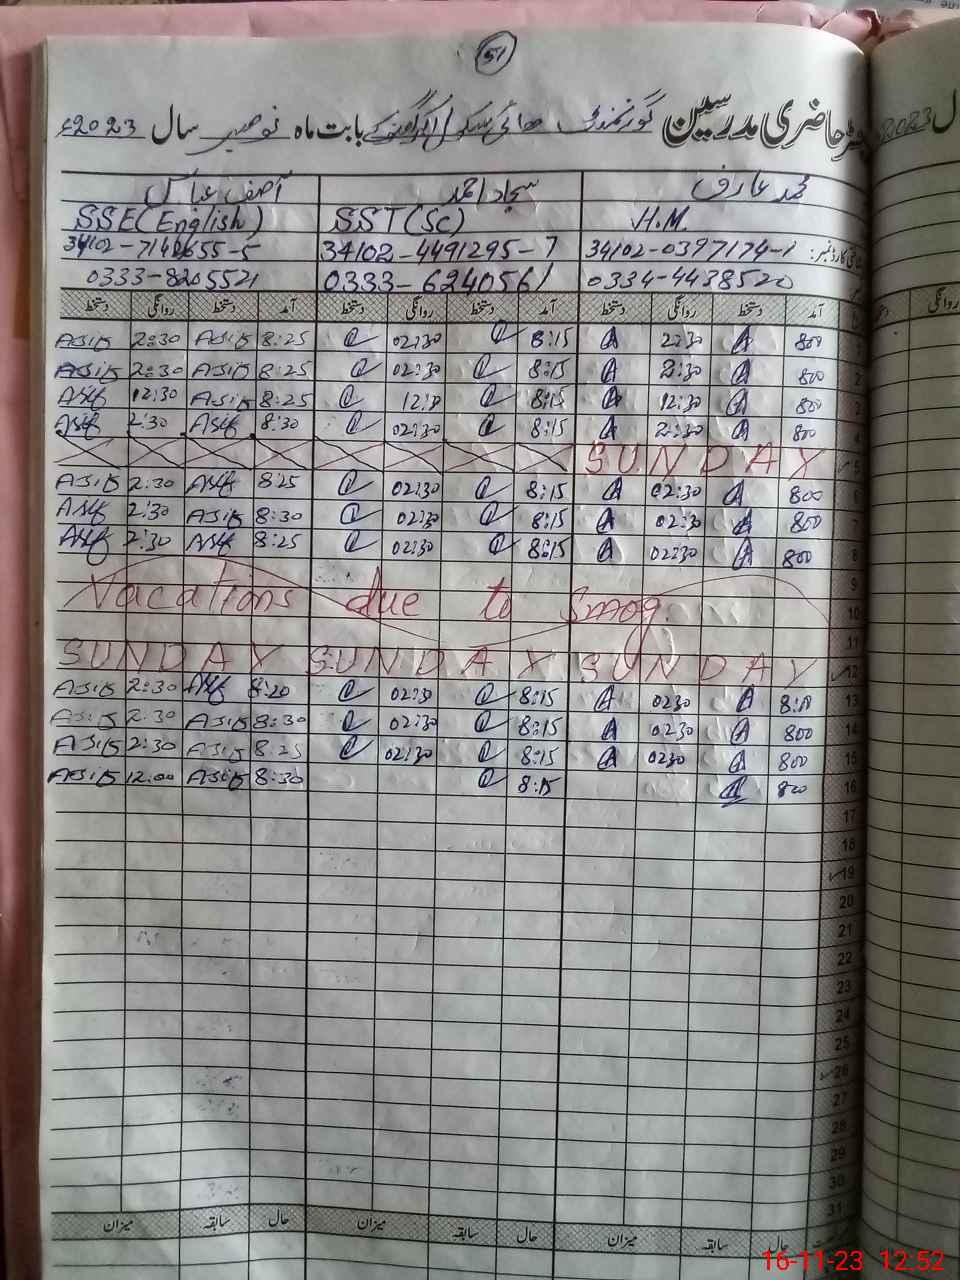 51
حاضری مدرسین گورنمنٹ ہائی سکول بابت ماہ نومبر سال 2023ء
محمد عارف سجاد احمد آصف عباس
H.M. SST(Sc) SSE(English)
34102-0397174-1 34102-4491295-7 34102-7142655-5
0334-4438520 0333-6240561 0333-8205521
آمد دستخط روانگی دستخط آمد دستخط روانگی دستخط آمد دستخط روانگی دستخط
1 800 2:30 8:15 02:30 8:25 Asif 2:30 Asif
2 800 2:30 8:15 02:30 8:25 Asif 2:30 Asif
3 800 12:30 8:15 8:25 Asif 12:30 Asif
4 800 2:30 8:15 02:30 8:30 Asif 2:30 Asif
5 SUNDAY
6 800 02:30 8:15 02:30 8:25 Asif 2:30 Asif
7 800 02:30 8:15 02:30 8:30 Asif 2:30 Asif
8 800 02:30 8:15 02:30 8:25 Asif 2:30 Asif
9
10 Vacations due to Smog.
11
12 SUNDAY SUNDAY SUNDAY
13 8:10 0230 8:15 02:30 8:20 Asif 2:30 Asif
14 800 0230 8:15 02:30 8:30 Asif 2:30 Asif
15 800 0230 8:15 02:30 8:25 Asif 2:30 Asif
16 800 8:15 8:30 Asif 12:00 Asif
17
18
19
20
21
22
23
24
25
26
27
28
29
30
31
حال سابقہ میزان حال سابقہ میزان حال سابقہ میزان
16-11-23 12:52